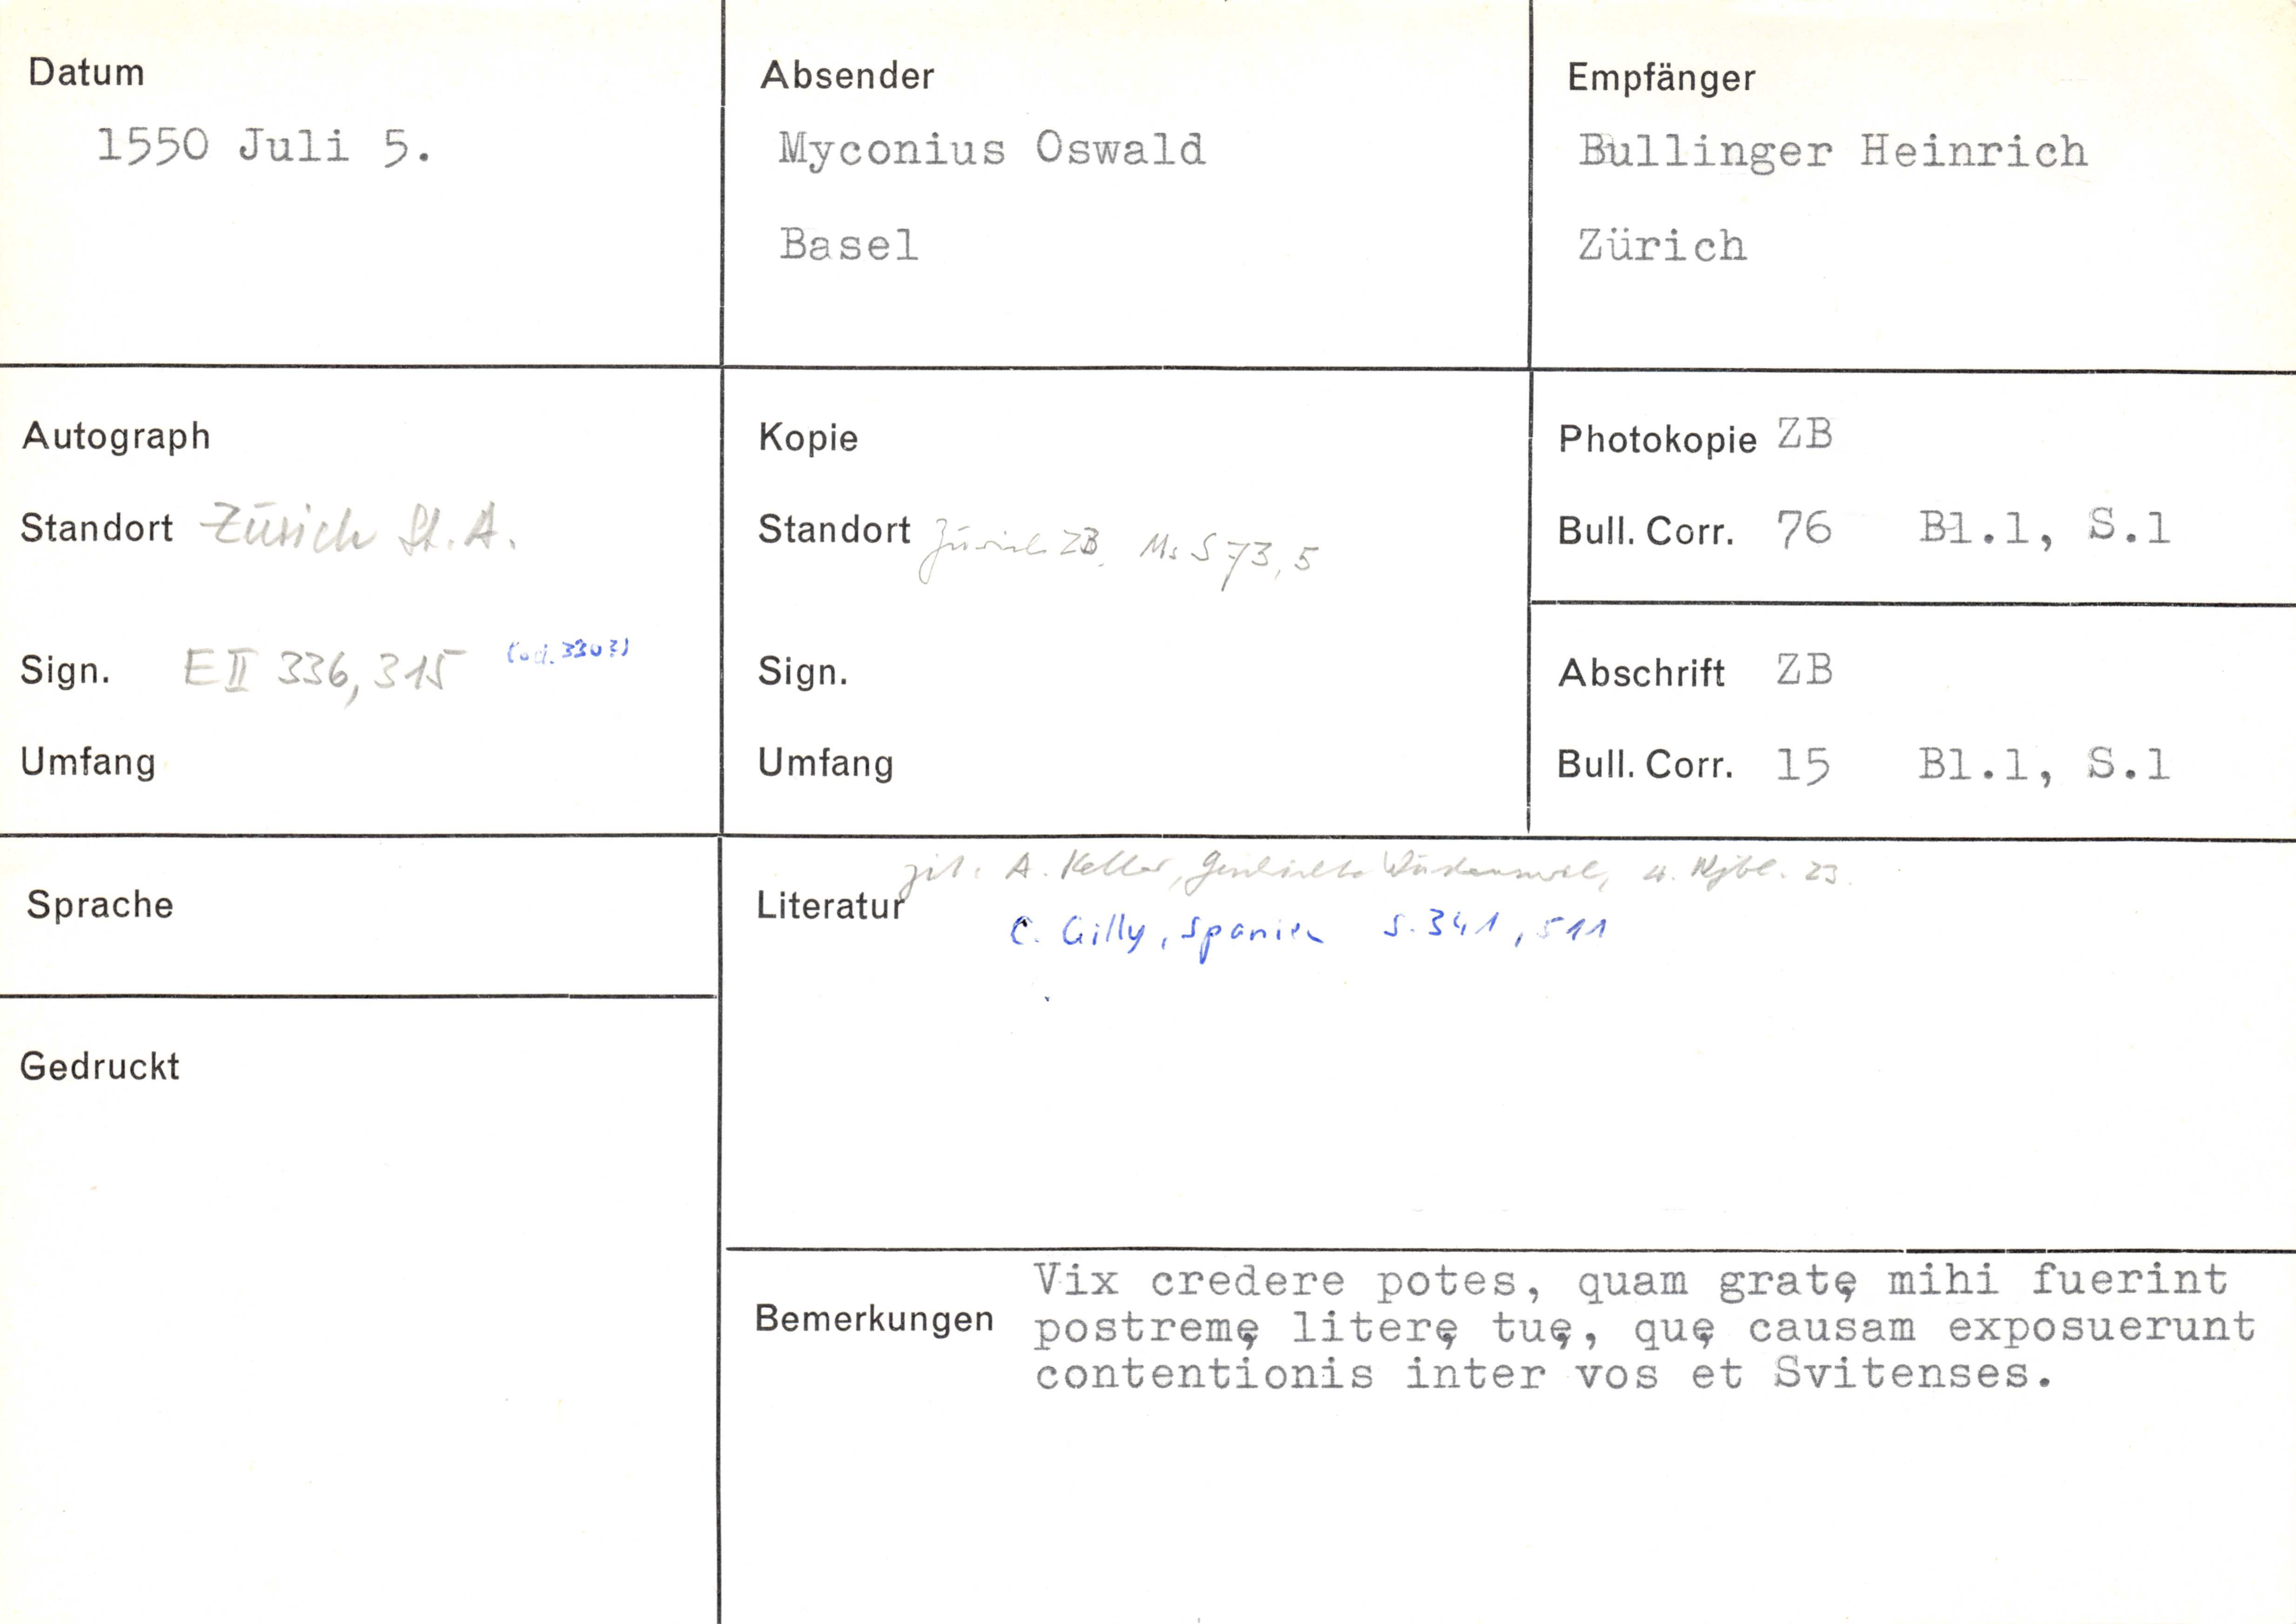 Datum
1550 Juli 5.
Absender
Myconius Oswald
Basel
Empfänger
Bullinger Heinrich
Zürich
Autograph
Standort Zürich St.A.
Sign. E II 336, 315
Umfang
Kopie
Standort Zürich ZB. Ms S 73, 5
Sign.
Umfang
Photokopie ZB
Bull. Corr. 76 Bl.1, S.1
Abschrift ZB
Bull. Corr. 15 Bl.1, S.1
Sprache
Gedruckt
zit. A. Keller, 4. Njbl. 23.
Literatur
C. Gilly, Spanien S. 341, 511
Bemerkungen
Vix credere potes, quam gratę mihi fuerint
postremę literę tuę, quę causam exposuerunt
contentionis inter vos et Svitenses.